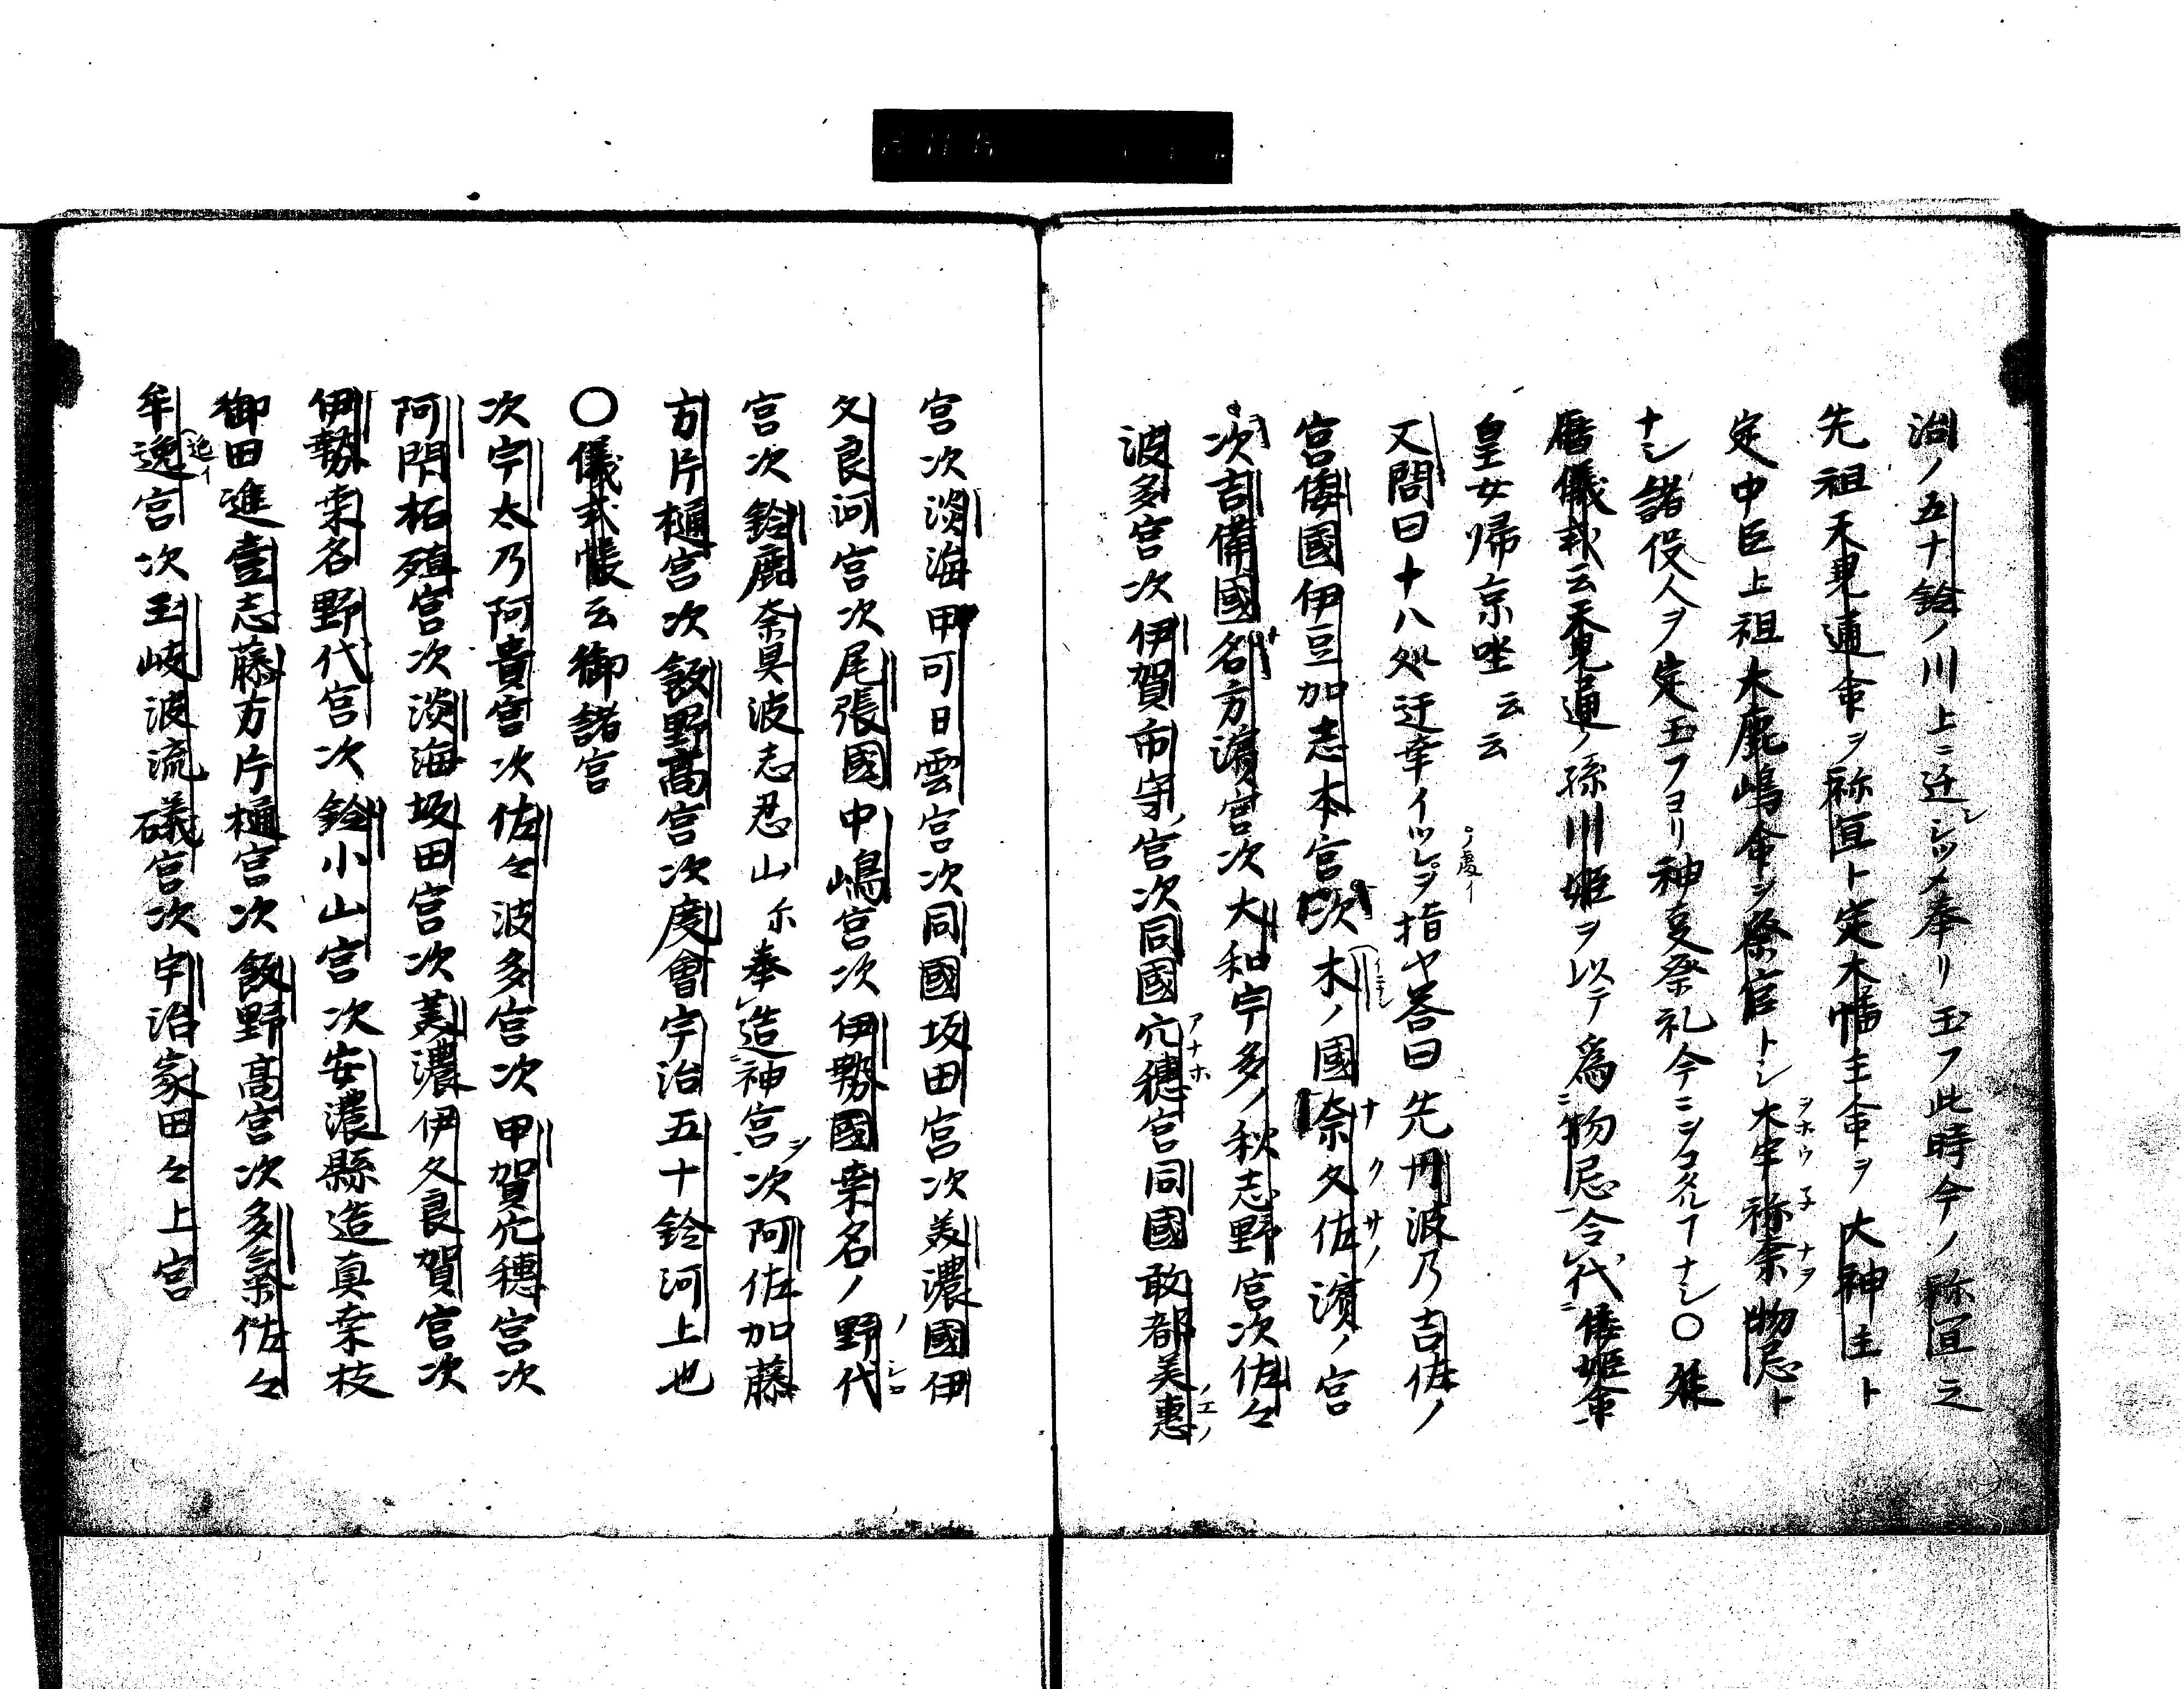 治ノ五十鈴ノ川上ニ迁シツメ奉リ玉フ此時今ノ祢冝之
先祖天見通命ヲ祢冝ト定大幡主命ヲ大神主ト
定中臣上祖大鹿嶋命ヲ祭官トシ大宇祢奈物忌ト
ナシ諸役人ヲ定玉フヨリ神㕝祭礼今ニシコタルヿナシ〇延
暦儀式云天見通ノ孫川姫ヲ以テ為物忌令代倭姫命
皇女帰京坐云云
又問曰十八処迁幸イツレヲ指ヤ荅曰先丹波乃吉佐ノ
宮倭國伊豆加志本宮次木ノ國奈久佐濱ノ宮
次吉備國名方濱宮次大和宇多ノ秋志野宮次佐々
波多宮次伊賀市守ノ宮次同國穴穂宮同國敢都美恵
宮次淡海甲可日雲宮次同國坂田宮次美濃國伊
久良河宮次尾張國中嶋宮次伊勢國桒名ノ野代
宮次鈴鹿奈具波志忍山尓奉造神宮次阿佐加藤
方片樋宮次飯野高宮次度會宇治五十鈴河上也
〇儀式帳云御諸宮
次宇太乃阿貴宮次佐々波多宮次甲賀穴穂宮次
阿閇柘殖宮次淡海坂田宮次美濃伊久良賀宮次
伊勢桒名野代宮次鈴小山宮次安濃縣造真桒枝
御田進壹志藤方片樋宮次飯野高宮次多氣佐々
牟逸宮次玉岐波流礒宮次宇治家田々上宮